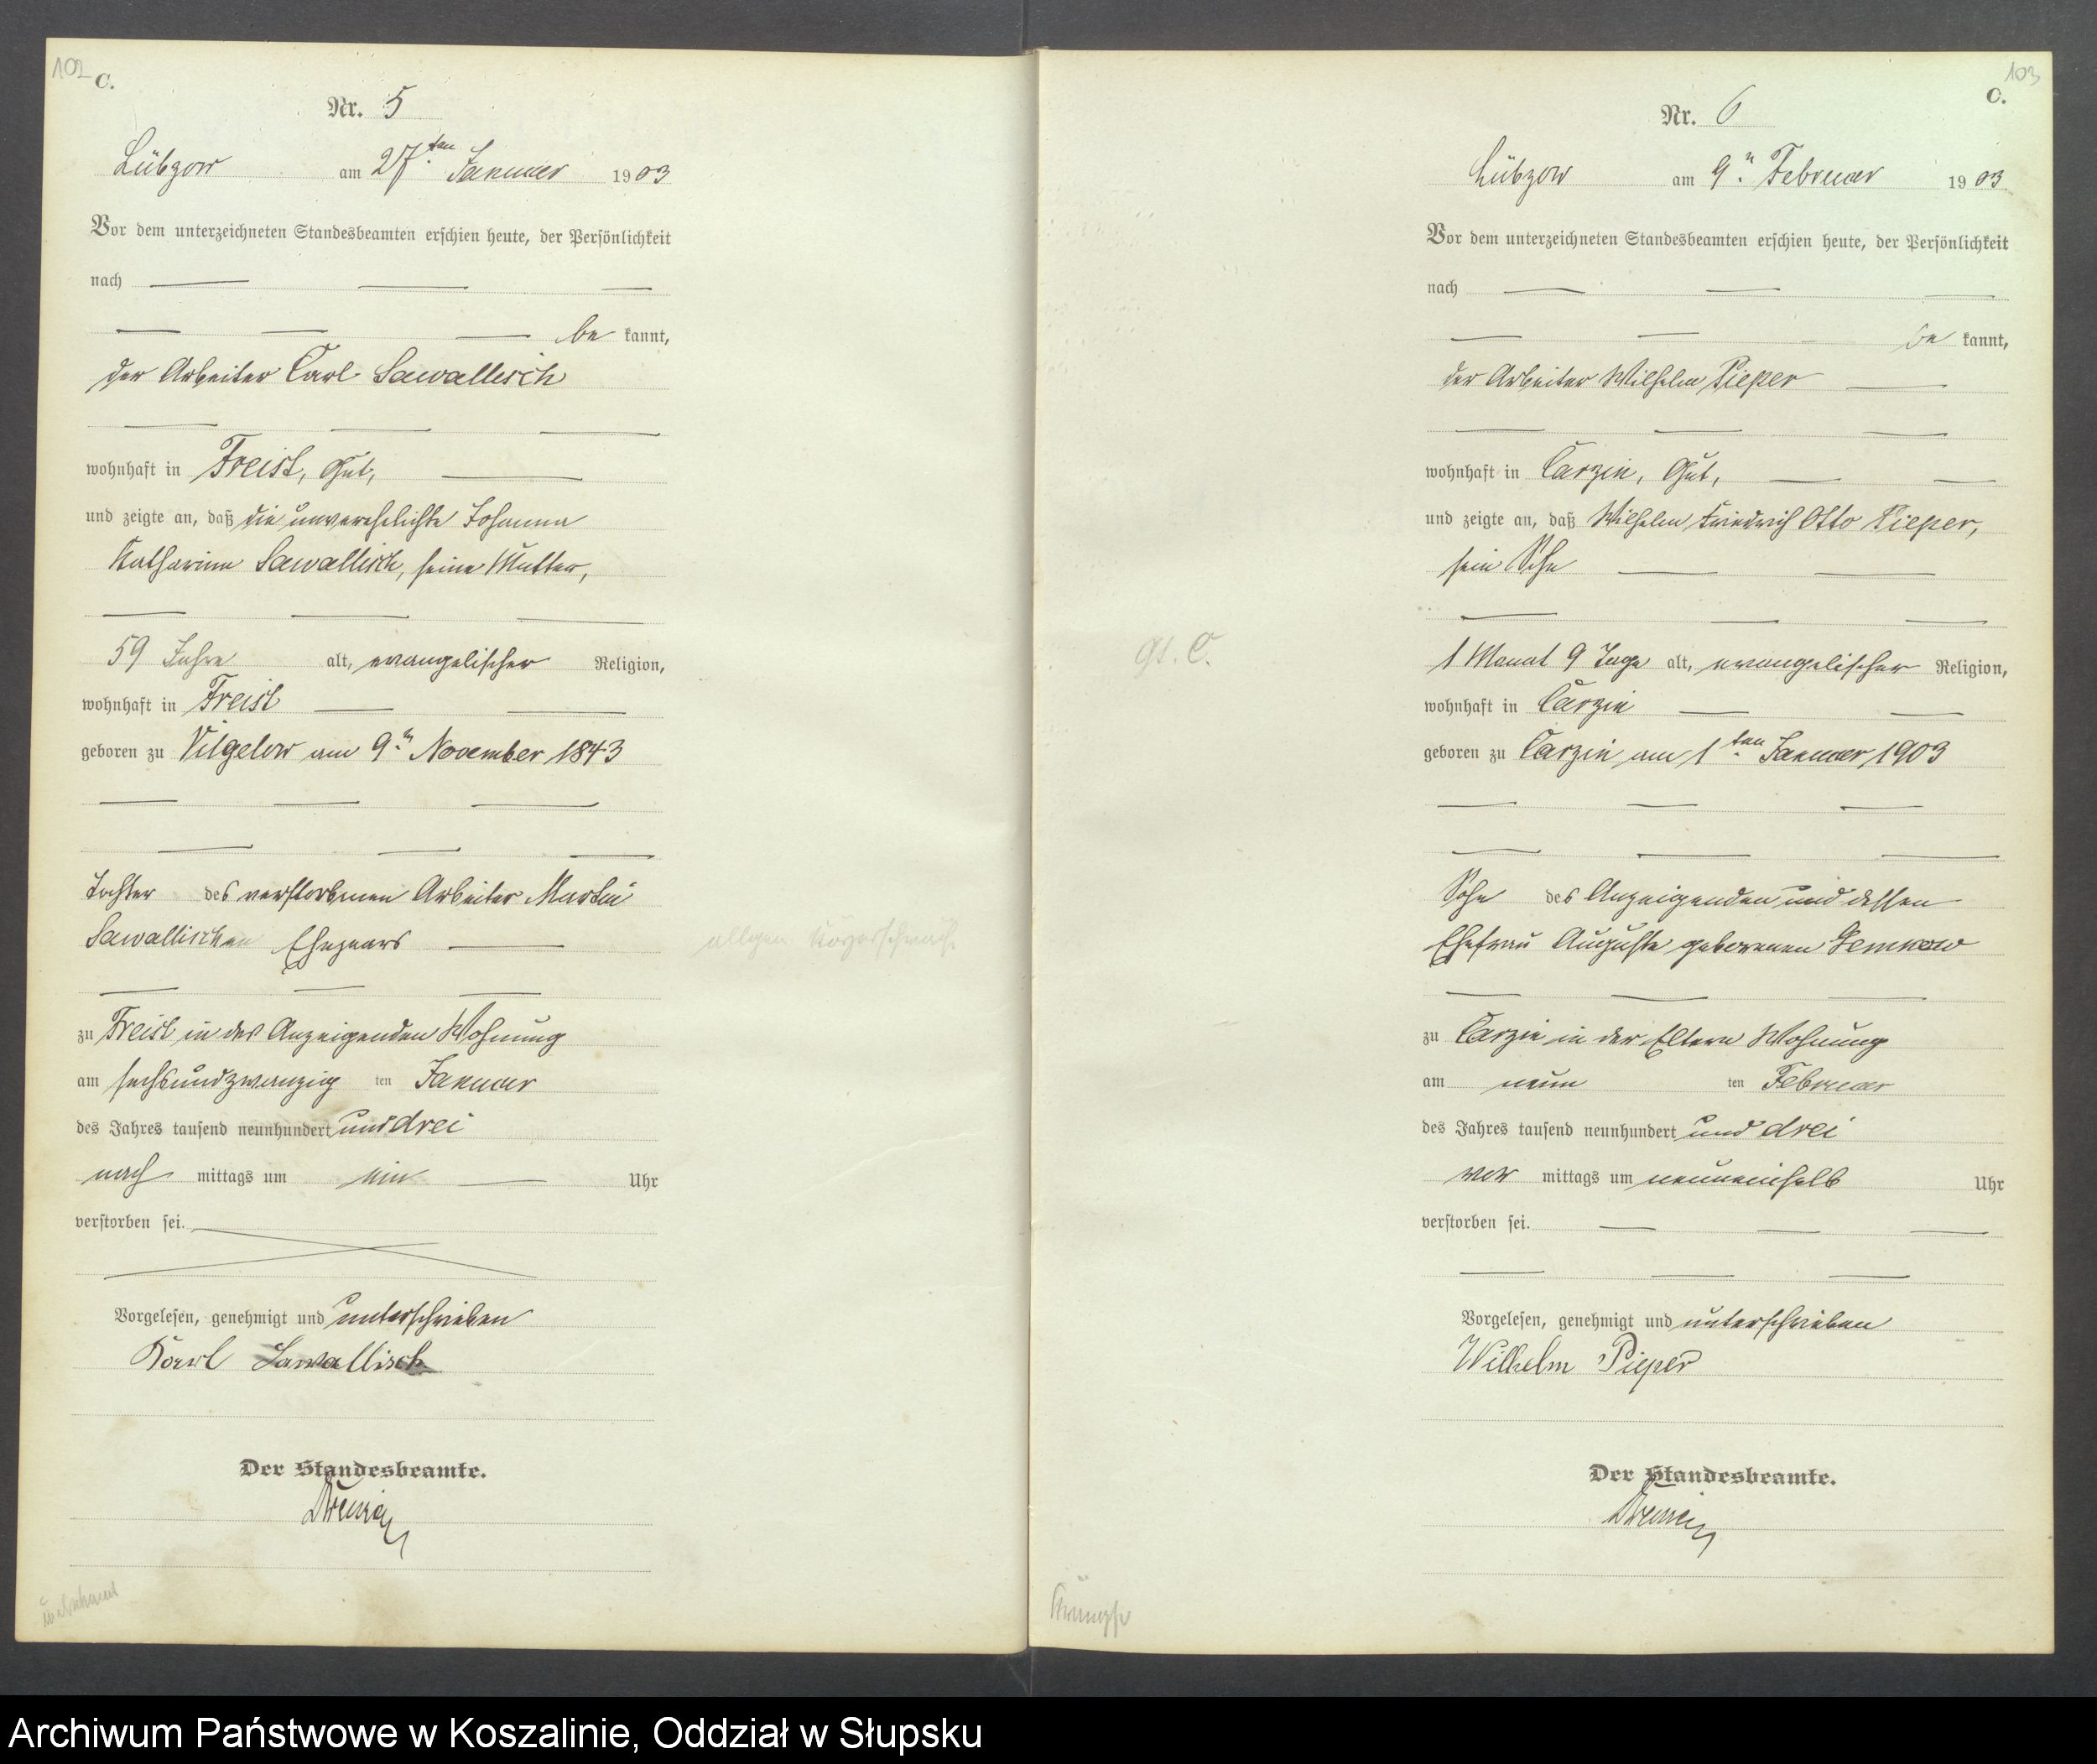 102
C.
Nr. 5
Lübzow am 27ten Januar 1903
Vor dem unterzeichneten Standesbeamten erschien heute, der Persönlichkeit
nach
be kannt,
der Arbeiter Carl Sawallisch
wohnhaft in Freist, Gut,
und zeigte an, daß die unverehelichte Johanna
Katharine Sawallisch, seine Mutter,
59 Jahre alt, evangelischer Religion,
wohnhaft in Freist
geboren zu Vilgelow am 9n November 1843
Tochter des verstorbenen Arbeiter Martin
Sawallischen Ehepaars
allgem Körperschwäche
zu Freist in des Anzeigenden Wohnung
am sechsundzwanzig ten Januar
des Jahres tausend neunhundert und drei
nach mittags um ein Uhr
verstorben sei.
Vorgelesen, genehmigt und unterschrieben
Karl Sawallisch
Der Standesbeamte.
103
C.
Nr. 6
Lübzow am 9n Februar 1903
Vor dem unterzeichneten Standesbeamten erschien heute, der Persönlichkeit
nach
be kannt,
der Arbeiter Wilhelm Pieper
wohnhaft in Carzin, Gut,
und zeigte an, daß Wilhelm Friedrich Otto Pieper,
sein Sohn
1 Monat 9 Tage alt, evangelischer Religion,
Gt. C.
wohnhaft in Carzin
geboren zu Carzin am 1ten Januar 1903
Sohn des Anzeigenden und dessen
Ehefrau Auguste geborenen Zemkow
zu Carzin in der Eltern Wohnung
am neun ten Februar
des Jahres tausend neunhundert und drei
vor mittags um neuneinhalb Uhr
verstorben sei.
Vorgelesen, genehmigt und unterschrieben
Wilhelm Pieper
Der Standesbeamte.
Krämpfe
Archiwum Państwowe w Koszalinie, Oddział w Słupsku